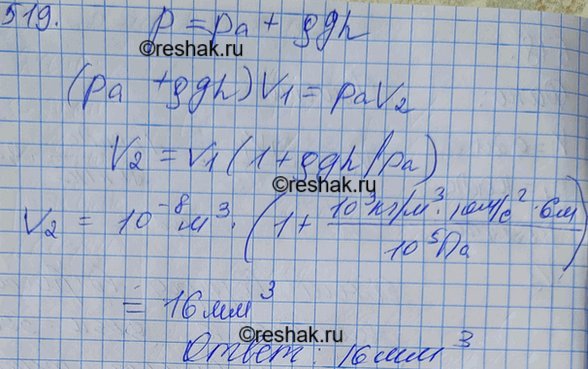 519. p = pa + ρgh
©reshak.ru
(pa + ρgh)V1 = paV2
V2 = V1(1 + ρgh/pa)
©reshak.ru
V2 = 10⁻⁸ м³ · (1 + 10³ кг/м³ · 10 м/с² · 6 м / 10⁵ Па)
= 16 мм³
©reshak.ru
Ответ: 16 мм³